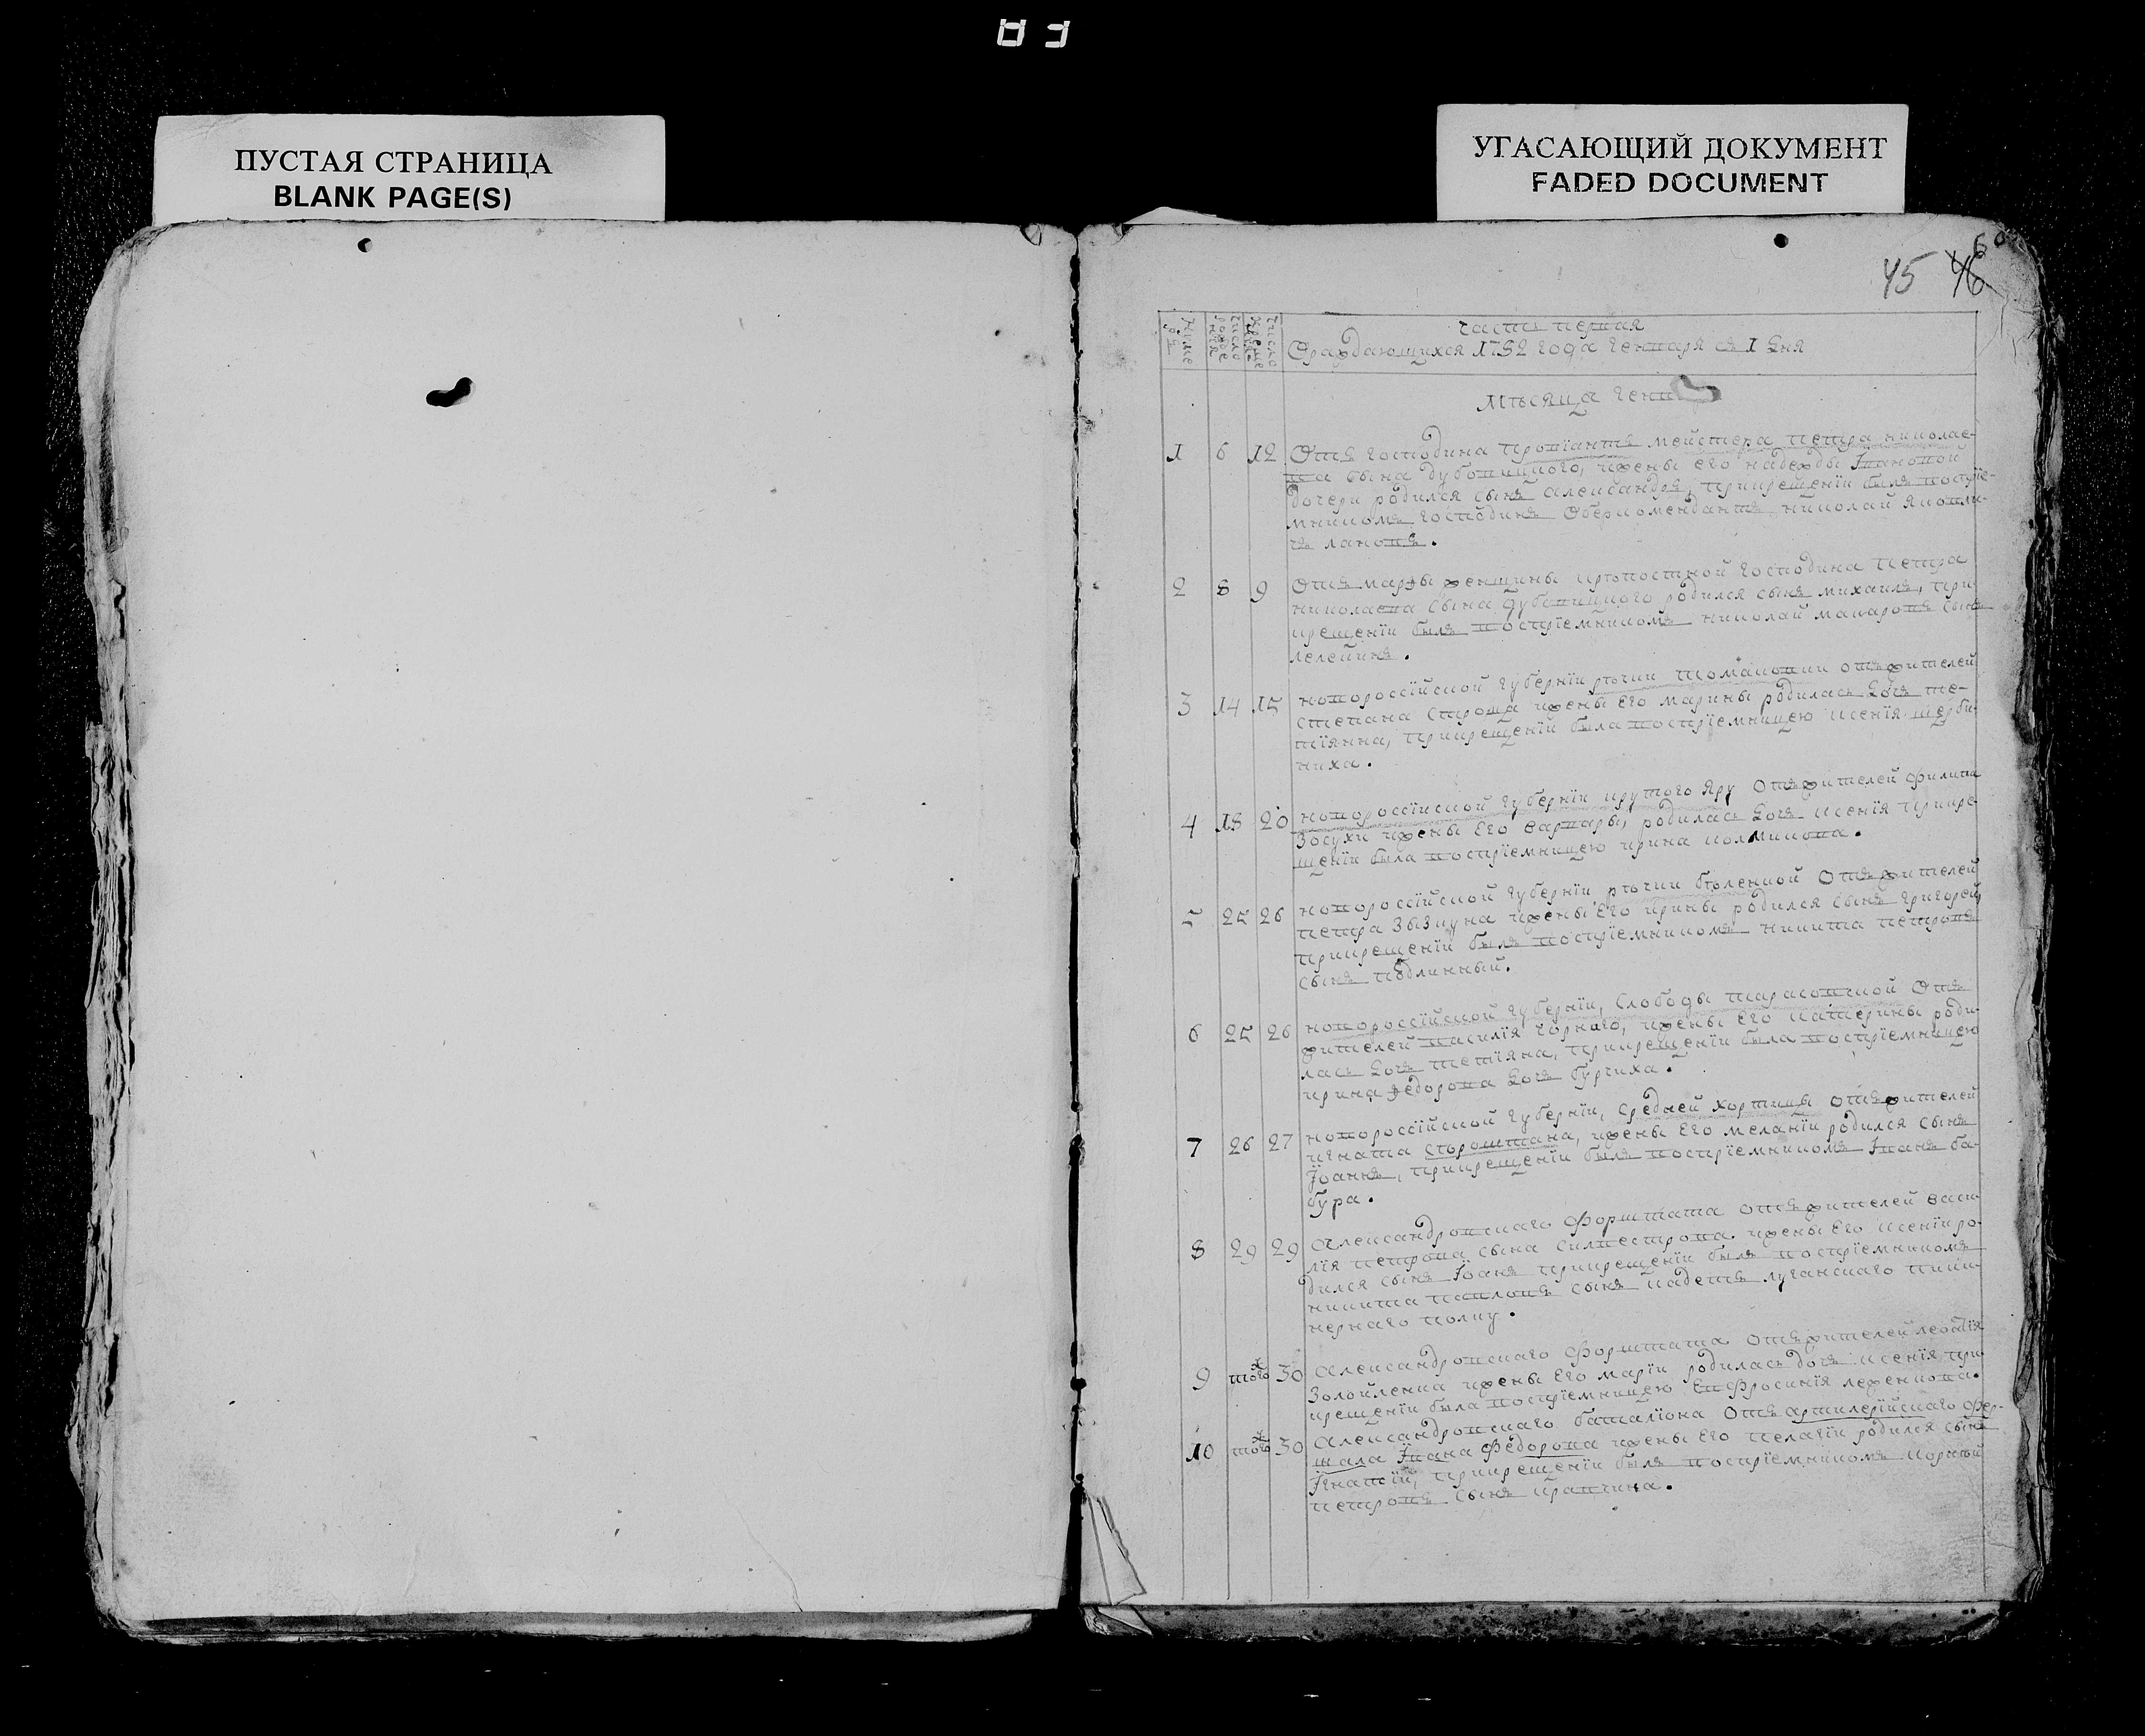 83
ПУСТАЯ СТРАНИЦА
BLANK PAGE(S)
УГАСАЮЩИЙ ДОКУМЕНТ
FADED DOCUMENT
60
45 46
Часть первая
Ораждающихся 1782 года Генваря съ 1 Дня
Числο рожде нїя
Число креще нїя
Мѣсяца Генв
1 6 12 Отъ Господина провїантъ мейстера петра николае-
ва сына дубовицкого, ижены его надежды Iвановой
дочери родился сынъ александръ, прикрещенїи былъ воспрїе-
мникомъ Господинъ Оберкомендантъ николай яковли-
чъ лановъ.
2 8 9 Отъ марфы женщины крѣпостной Господина Петра
николаева сына дубовицкого родился сынъ михаилъ, при-
крещенїи былъ воспрїемникомъ николай макаровъ сынъ
лелекинъ.
3 14 15 новоросс­їйской губернїи рѣчки томаковки отъжителей
степана строща ижены Его марины родилась Дочь те-
тїянна, прикрещенїи была воспрїемницею ксенїя щерби-
ниха.
4 18 20 новороссїйской Губернїи крутого Яру Отъжителей филипа
Зосухи ижены Его варвары, родилась Дочь ксенїя прикре-
щенїи была воспрїемницею ирина колмикова.
5 25 26 новороссїйской губернїи рѣчки бѣленкой Отъжителей
петра Звізкуна ижены Его ирины родился сынъ григорей,
прикрещенїи былъ воспрїемникомъ никита петровъ
сынъ подлинный.
6 25 26 новороссїйской Губернїи, Слободы тарасовчкой Отъ
жителей василїя чорнаго, ижены Его катерины роди-
лась Дочь тетїяна, прикрещенїи была воспрїемницею
ирина федорова Дочь бурчиха.
7 26 27 новороссїйской губернїи, средней хортицы отъжителей
игната стороштана, ижены Его меланїи родился сынъ
Iоаннъ, прикрещенїи былъ воспрїемникомъ Iванъ ба-
бура.
8 29 29 Александровскаго Форштата отъжителей васи-
лїя петрова сына силвестрова ижены Его ксенїи ро-
дился сынъ Iоанъ прикрещенїи былъ воспрїемникомъ
никита павловъ сынъ кадетъ луганскаго пики-
нернаго полку.
9 тогож 30 Александровскаго Форштата Отъжителей леонтїя
Золойленка ижены Его марїи родилась дочь ксенїя при-
крещенїи была воспрїемницею Евфросинїя леженкова.
10 тогож 30 Александровскаго баталїона Отъ артилерїйскаго фер-
шала Iвана Федорова ижены Его пелагїи родился сынъ
Iгнатїй, прикрещенїи былъ воспрїемникомъ корнѣй
петровъ сынъ кравчина.